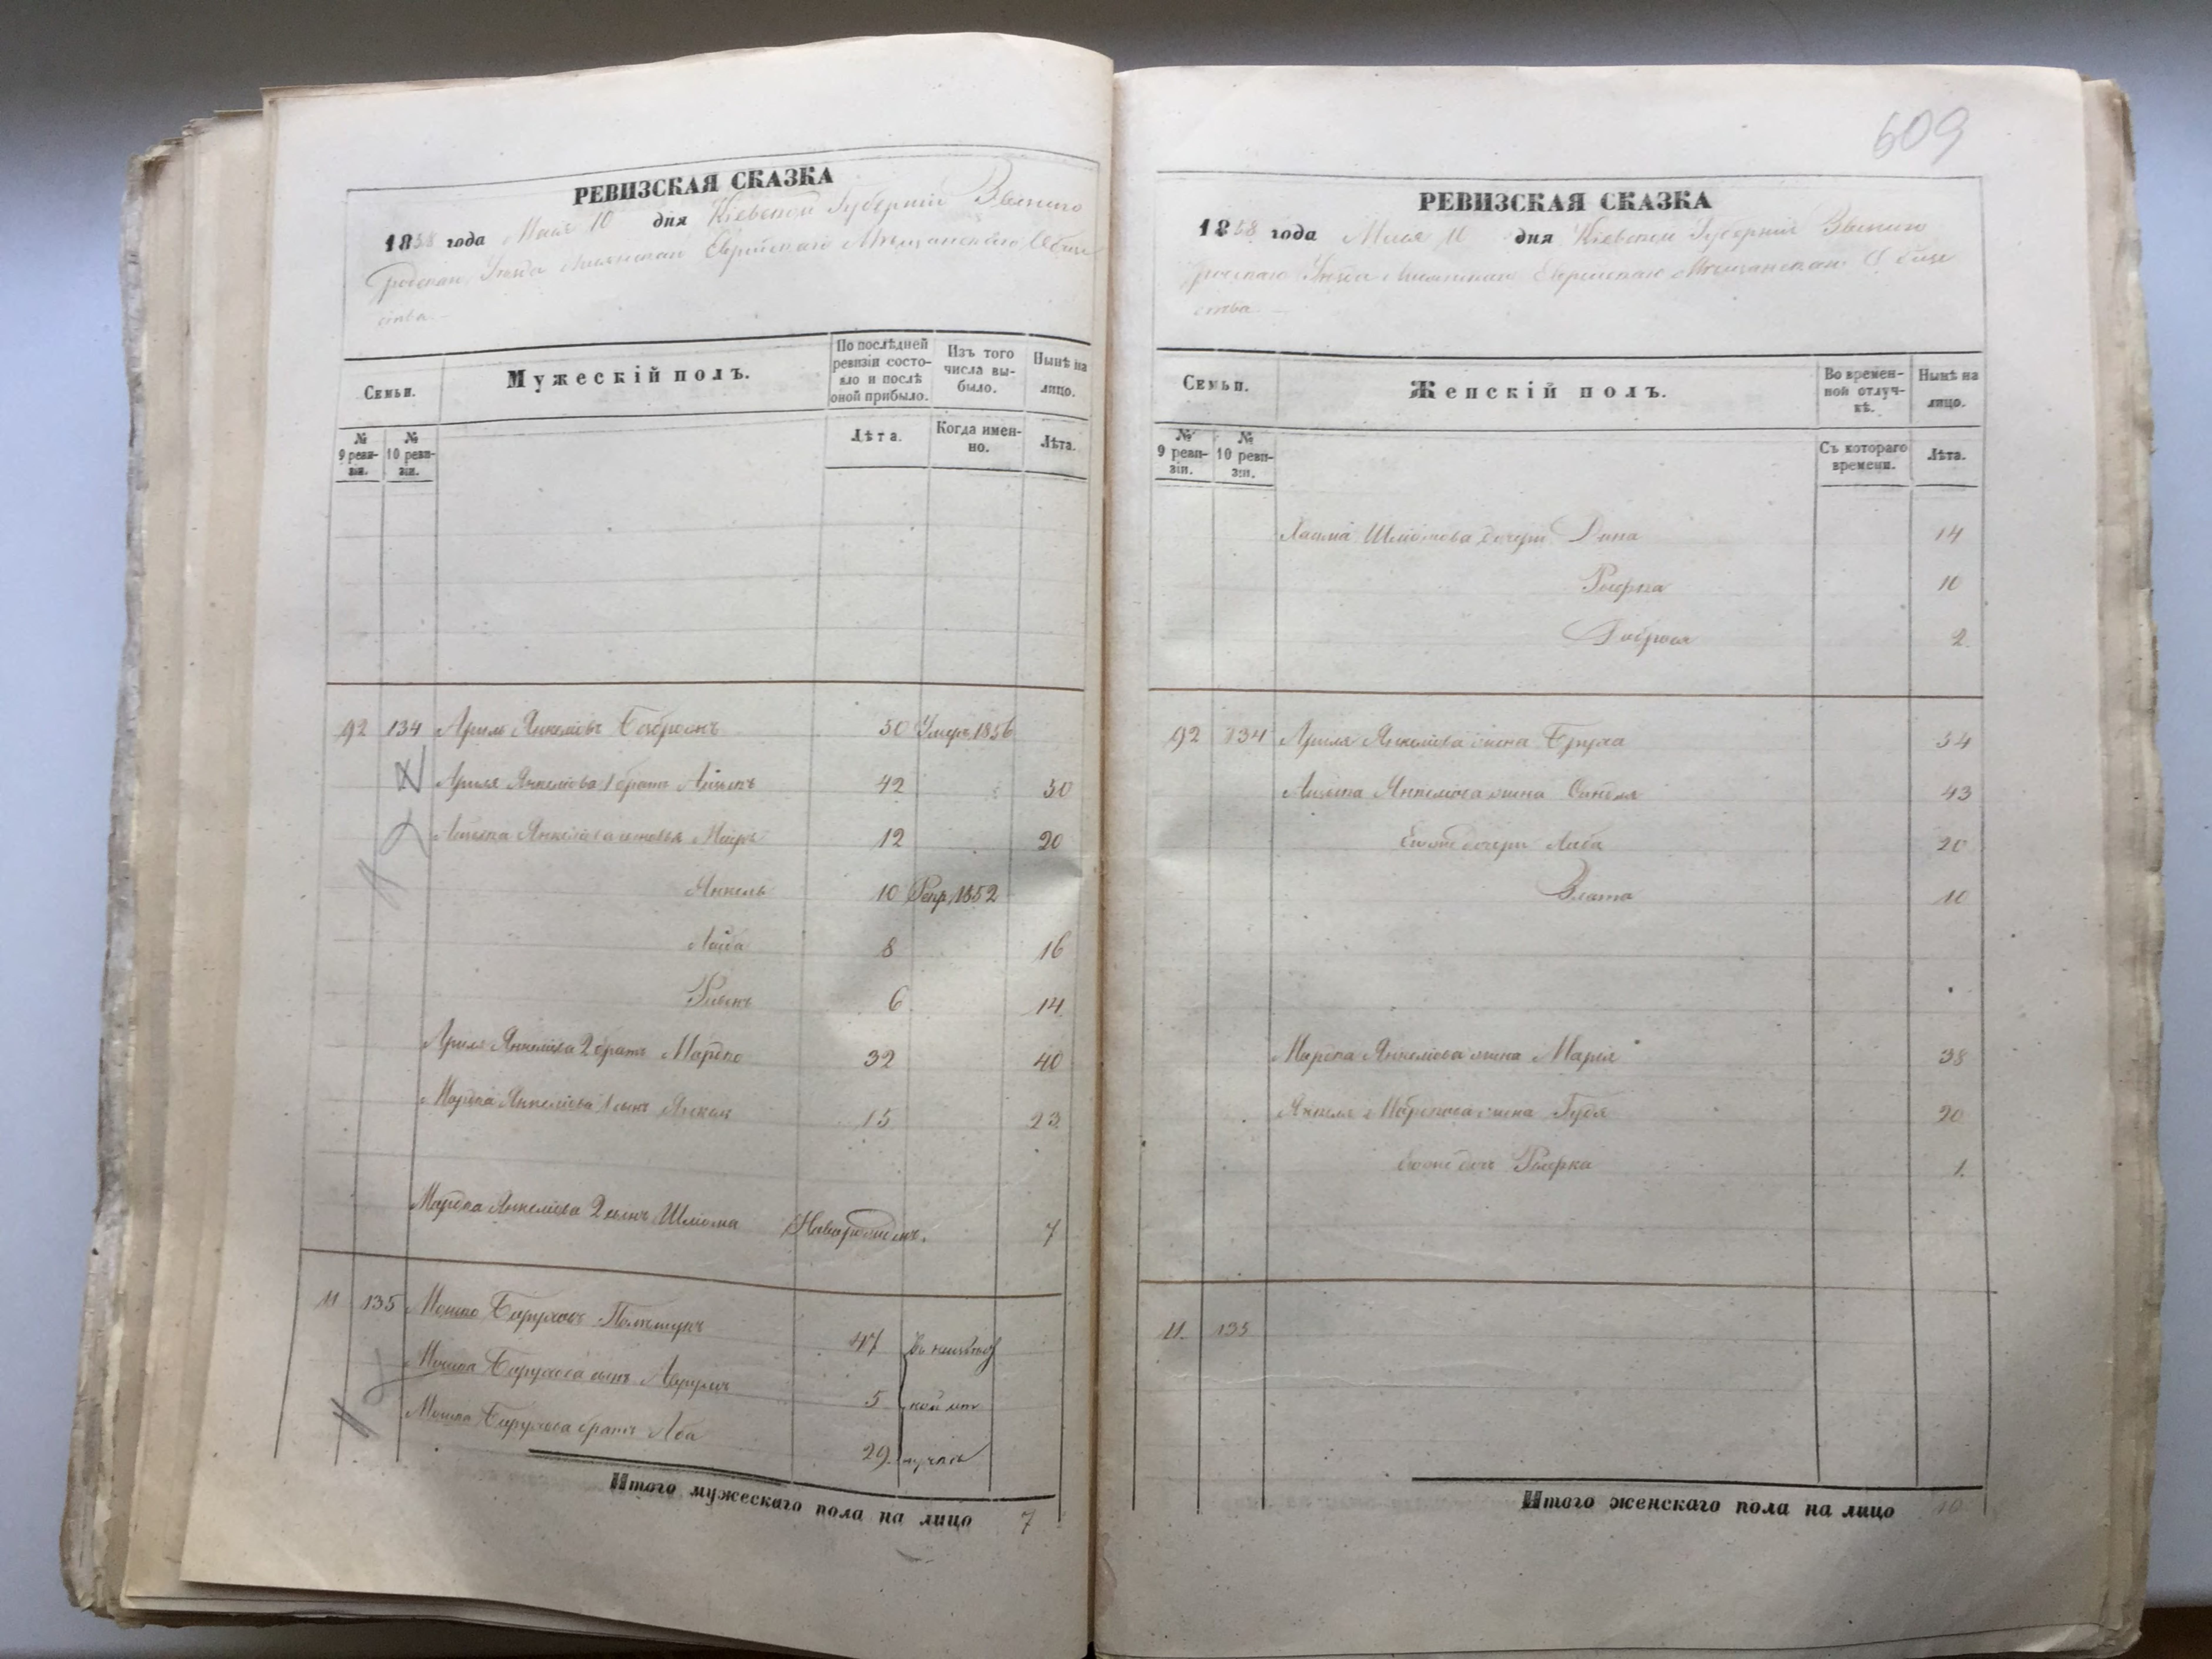 РЕВИЗСКАЯ СКАЗКА
1858 года Мая 10 дня Кіевской Губерніи Звениго
родскаго Уѣзда Лисянскаго Еврейскаго Мѣщанскаго Обще
ства
Семьи.
Мужескій полъ.
По послѣдней ревизіи состояло и послѣ оной прибыло.
Изъ того числа выбыло.
Нынѣ на лицо.
№ 9 ревизіи.
№ 10 ревизіи.
Лѣта.
Когда именно.
Лѣта.
92 134 Аріль Янкелевъ 50 Умеръ 1856
Ариля Янкеліова 1 братъ Айзикъ 42 50
Айзика Янкеліова сыновья Меіръ 12 20
Янкель 10 Рекр. 1852
Лейба 8 16
6 14
Ариля Янкеліова 2 братъ Мардко 32 40
Мардка Янкеліова 1 сынъ Янкель 15 23
Мардка Янкеліова 2 сынъ Шліома Новорожденъ. 7
11 135 Мошко Боруховъ Полѣщукъ 47
Мошка Борухова сынъ Аврумъ 5
Мошка Борухова братъ Аба 29
Итого мужескаго пола на лицо 7
609
РЕВИЗСКАЯ СКАЗКА
1858 года Мая 10 дня Кіевской Губерніи Звениго
родскаго Уѣзда Лисянскаго Еврейскаго Мѣщанскаго Обще
ства
Семьи.
Женскій полъ.
Во временной отлучкѣ.
Нынѣ на лицо.
№ 9 ревизіи.
№ 10 ревизіи.
Съ котораго времени.
Лѣта.
Шліомова дочери Дина 14
10
2
92 134 Ариля Янкеліова жена Бруха 34
Айзика Янкеліова жена 43
Его же дочери Либа 20
Злата 10
Мардка Янкеліова жена Марія 38
Янкеля Мордкова жена Гудя 20
его же дочь 1
11 135
Итого женскаго пола на лицо 10